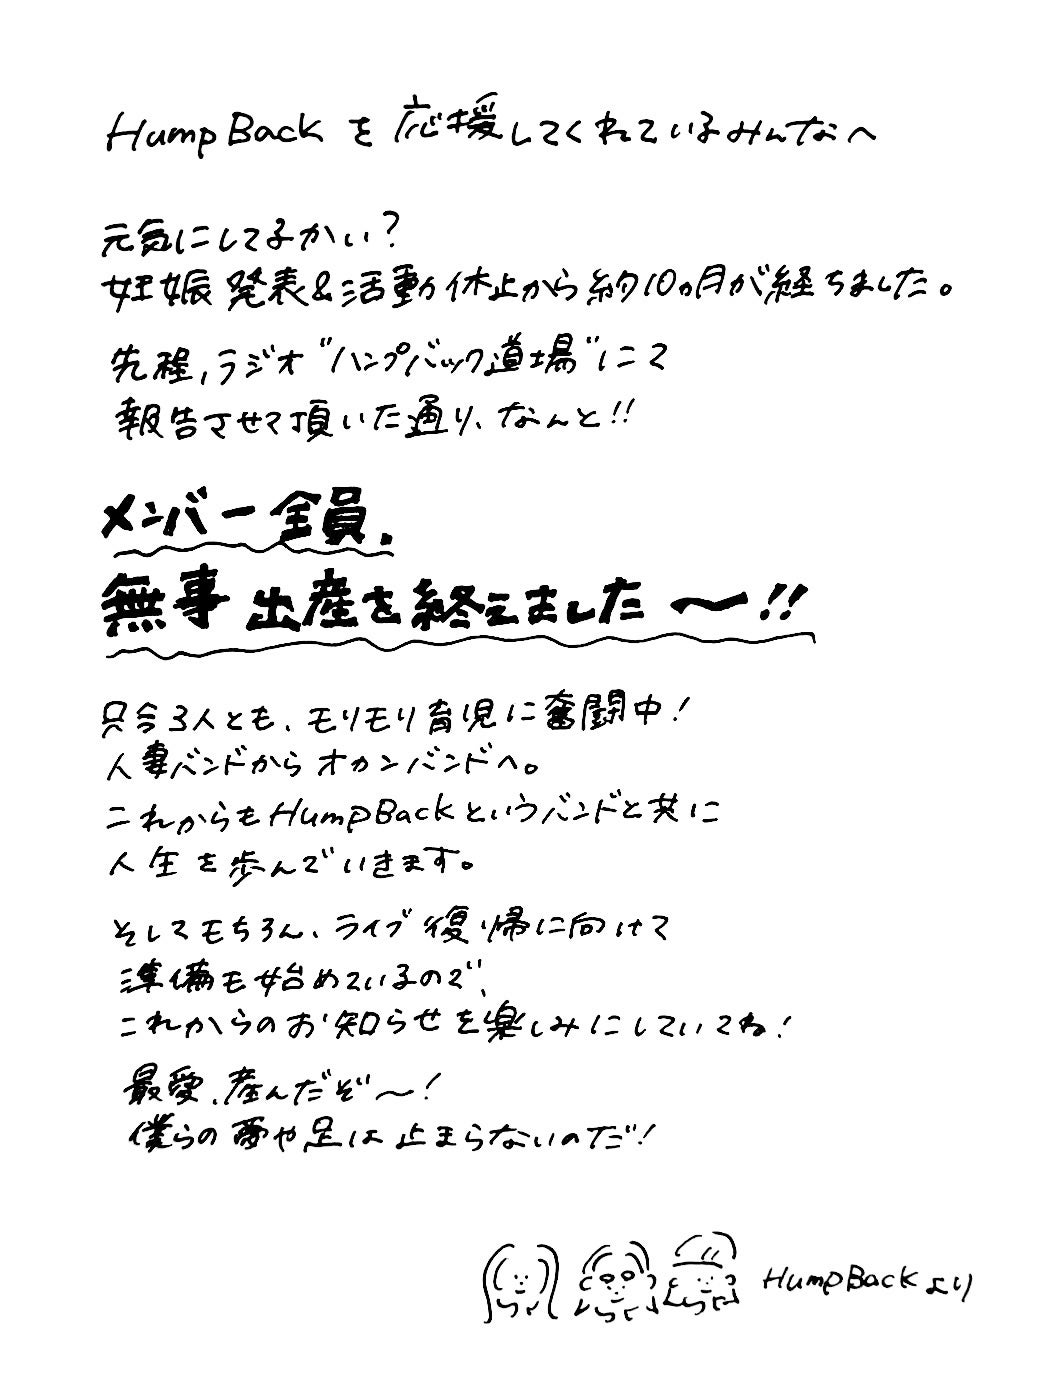 Hump Backを応援してくれているみんなへ
元気にしてるかい？
妊娠発表&活動休止から約10ヵ月が経ちました。
先程、ラジオ"ハンプバック道場"にて
報告させて頂いた通り、なんと!!
メンバー全員、
無事出産を終えました〜!!
只今3人とも、モリモリ育児に奮闘中！
人妻バンドからオカンバンドへ。
これからもHump Backというバンドと共に
人生を歩んでいきます。
そしてもちろん、ライブ復帰に向けて
準備も始めているので、
これからのお知らせを楽しみにしていてね！
最愛、産んだぞ〜！
僕らの夢や足は止まらないのだ！
Hump Backより